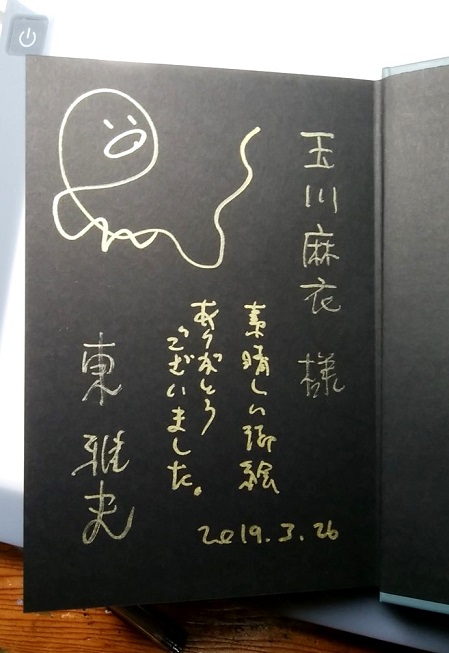 玉川麻衣 様
素晴しい御絵
ありがとう
ございました。
2019.3.26
東 雅夫